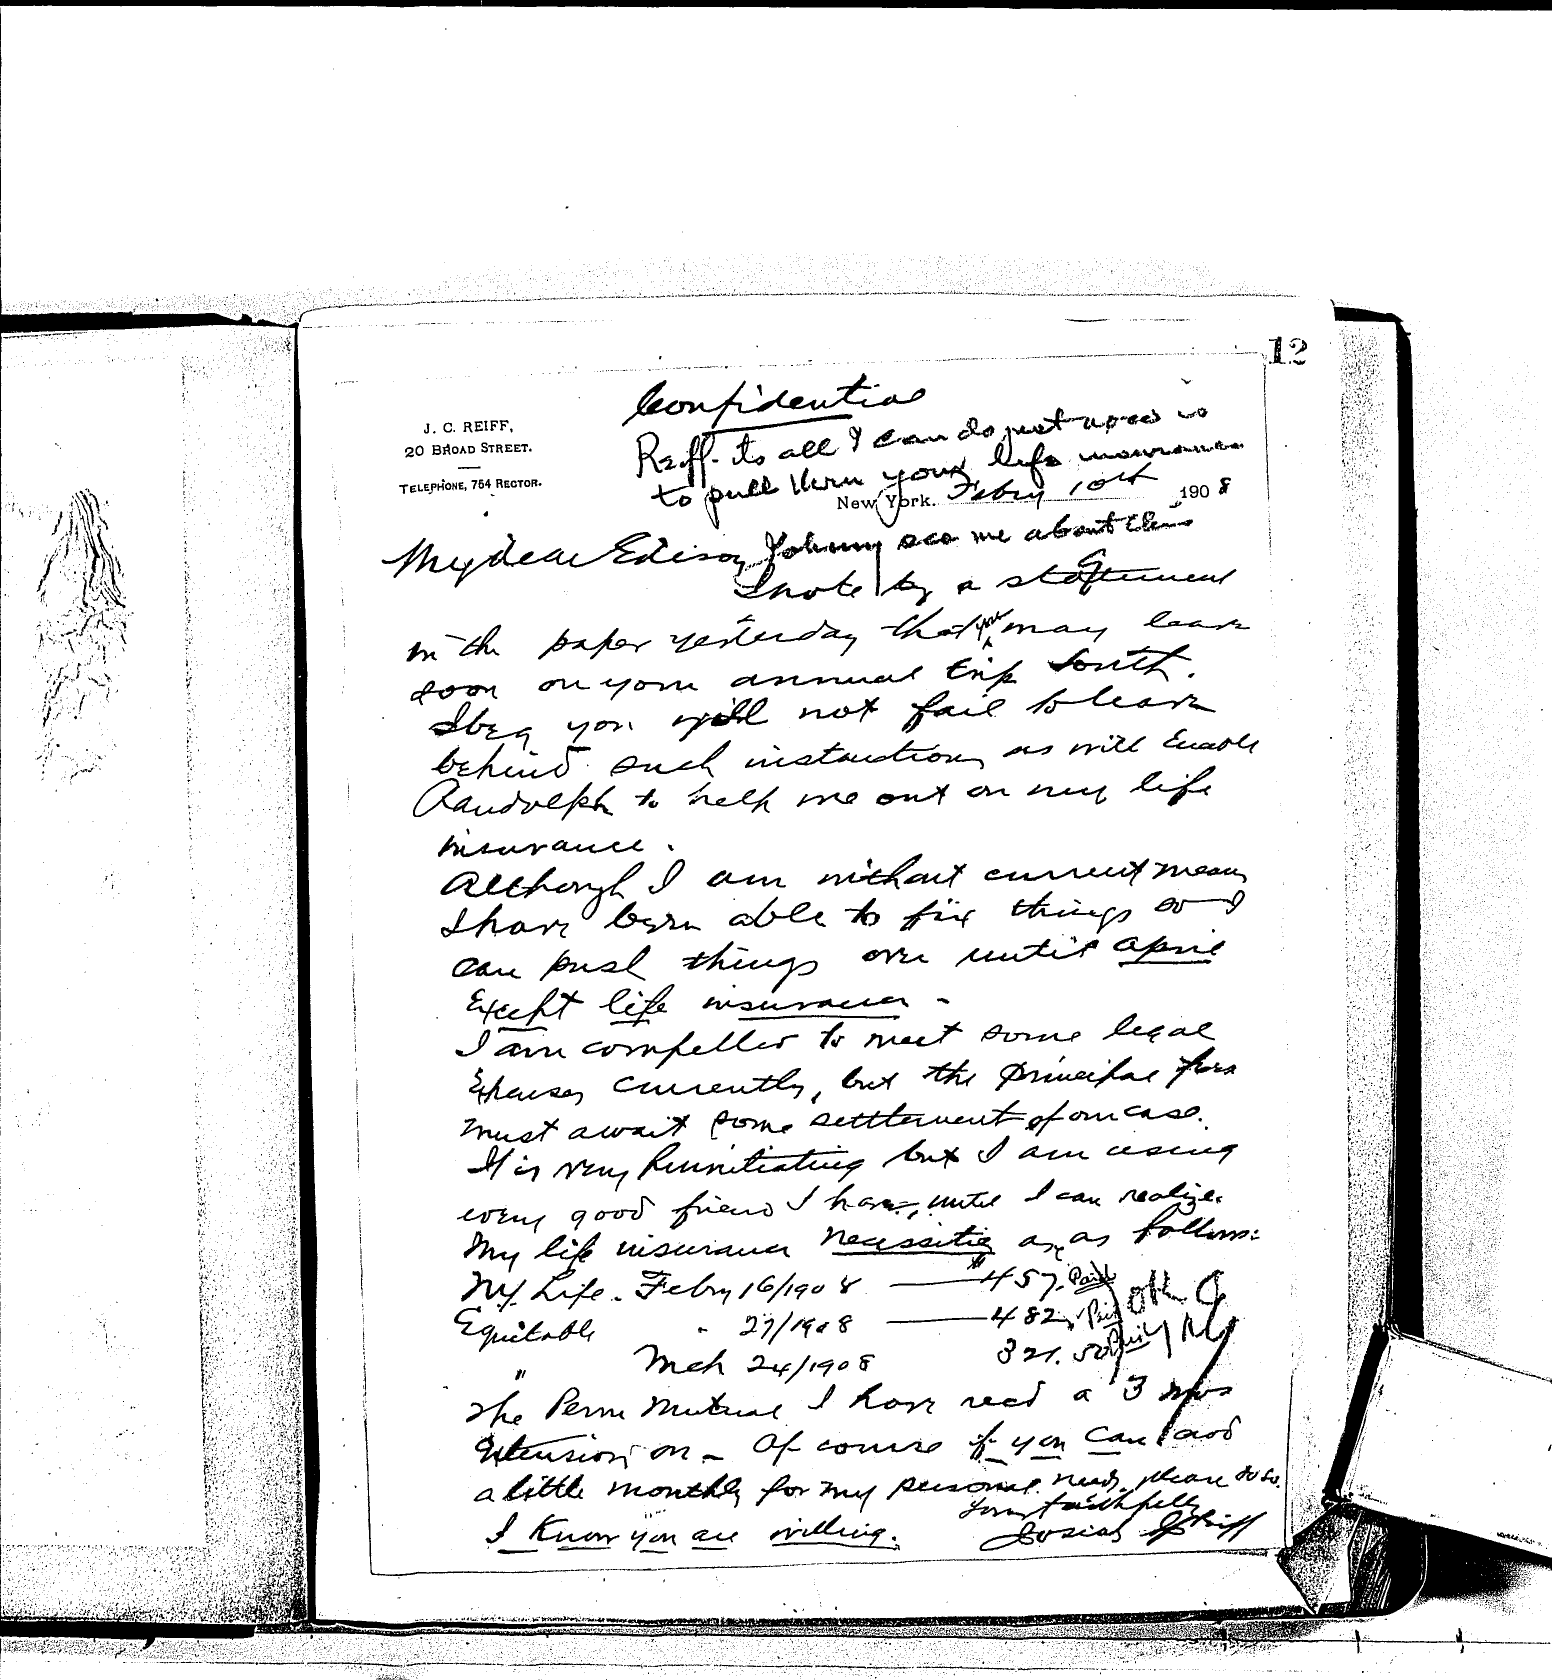 12
Confidential
J. C. REIFF,
20 BROAD STREET.
TELEPHONE, 754 RECTOR.
Reiff- its all I can do just now is
to pull thru your life insurance
New York. Febry 10th 1908
My dear Edison Johnny see me about this
I note by a statement
in the paper yesterday that you may leave
soon on your annual trip South.
I beg you will not fail to leave
behind such instructions as will Enable
Randolph to help me out on my life
insurance.
Although I am without current means
I have been able to fix things so I
can push things over until April
Except life insurance -
I am compelled to meet some legal
Expenses currently, but the principal fees
must await some settlement of our case.
It is very humiliating but I am using
every good friend I have, until I can realize.
My life insurance necessities are as follows:
NY. Life. Febry 16/1908 — $457. Paid
Equitable " 27/1908 — 482. Paid OK
" Mch 24/1908 321.50 Paid
The Penn Mutual I have recd a 3 mos
Extension on - Of course if you can add
a little monthly for my personal needs, please do so.
I Know you are willing. Yours faithfully
Josiah C Reiff